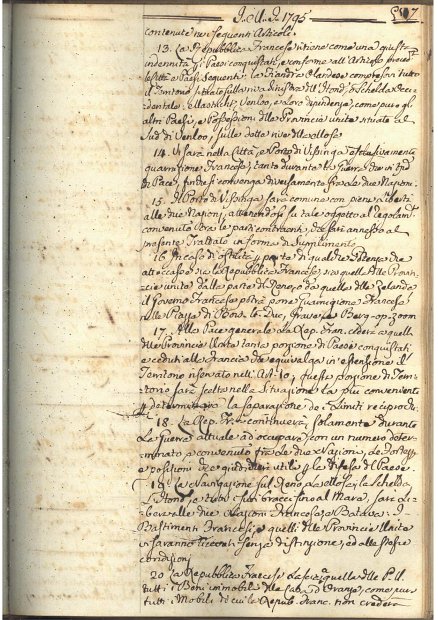 J. A. I. 1795
contenute ne seguenti Articoli.
13. La Repubblica Francese ritiene come una giusta
indennità di Paesi conquistati, e conforme all'Articolo preced.
le Città e Paesi seguenti. La Fiandra Olandese compreso tutto
il Territorio situato sulla riva sinistra dell'Hond, o Schelda Occi-
dentale, Mastricht, Venloo, e loro dipendenze, come pure gli
altri Paesi, e Possessioni delle Provincie unite situate al
Sud di Venloo, sulle dotte rive della Mosa.
14. Vi sarà nella Città, e Porto di Flissinga esclusivamente
guarnigione Francese, tanto durante la Guerra che in tempo
di Pace, finche si convenga diversamente fra le due Nazioni.
15. Il Porto di Flissinga sarà comune con piena libertà
alle due Nazioni, attenendosi su tale soggetto al regolam.
convenuto tra le parti contraenti, che sarà annesso al
presente Trattato in forma di Supplimento.
16. In caso di ostilità per parte di qualche Potenza che
attaccasse sia la Repubblica Francese, sia quella delle Provin-
cie unite dalla parte di Reno, o da quella della Zelanda
il Governo Francese potrà porre guarnigione Francese
nelle Piazze di Bois-le-Duc, Grave, e Berg-op-zoom
17. Alla Pace generale la Rep. Fran. cederà a quella
delle Provincie Unite tanta porzione di Paese conquistati
e ceduti alla Francia che equivalga in estensione il
Territorio riservato nell'Art. 10, queste porzione di Terri-
torio sarà scelta nella Situazione la più conveniente
per determinare la separazione de' Limiti reciprochi.
18. La Rep. Fr. continuerà, solamente durante
la Guerra attuale ad occupare, con un numero deter-
minato, e convenuto fra le due Nazioni, le Fortezze
e posizioni che giudicherà utili per la difesa del Paese.
19. La Navigazione sul Reno, la Mosa, la Schelda,
L'Hond, e tutti i suoi bracci fino al Mare, sarà Li-
bera alle due Nazioni Francese, e Batava: I
Bastimenti Francesi, e quelli delle Provincie Unite
vi saranno ricevuti senza distinzione, ed alle stesse
condizioni
20. La Repubblica Francese lascia a quella delle P. U.
tutti i Beni immobili della casa d'Orange, come pure
tutti i Mobili di cui la Repub. Franc. non crederà